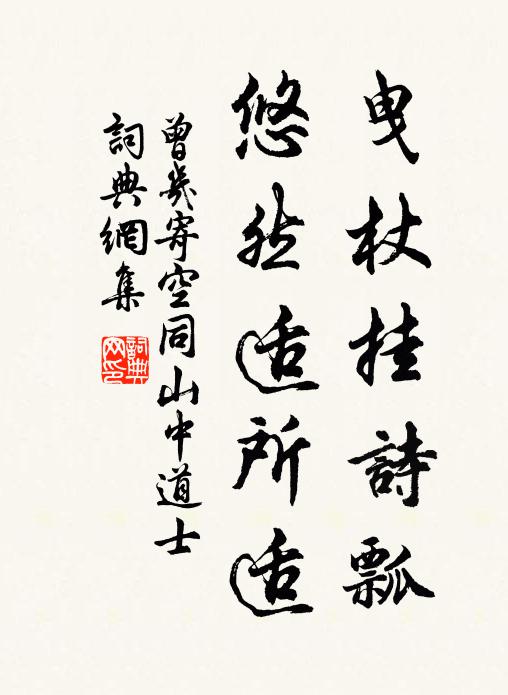 曳杖挂詩瓢
悠然适所适
曾幾寄空同山中道士
詞典網集
詞典网印